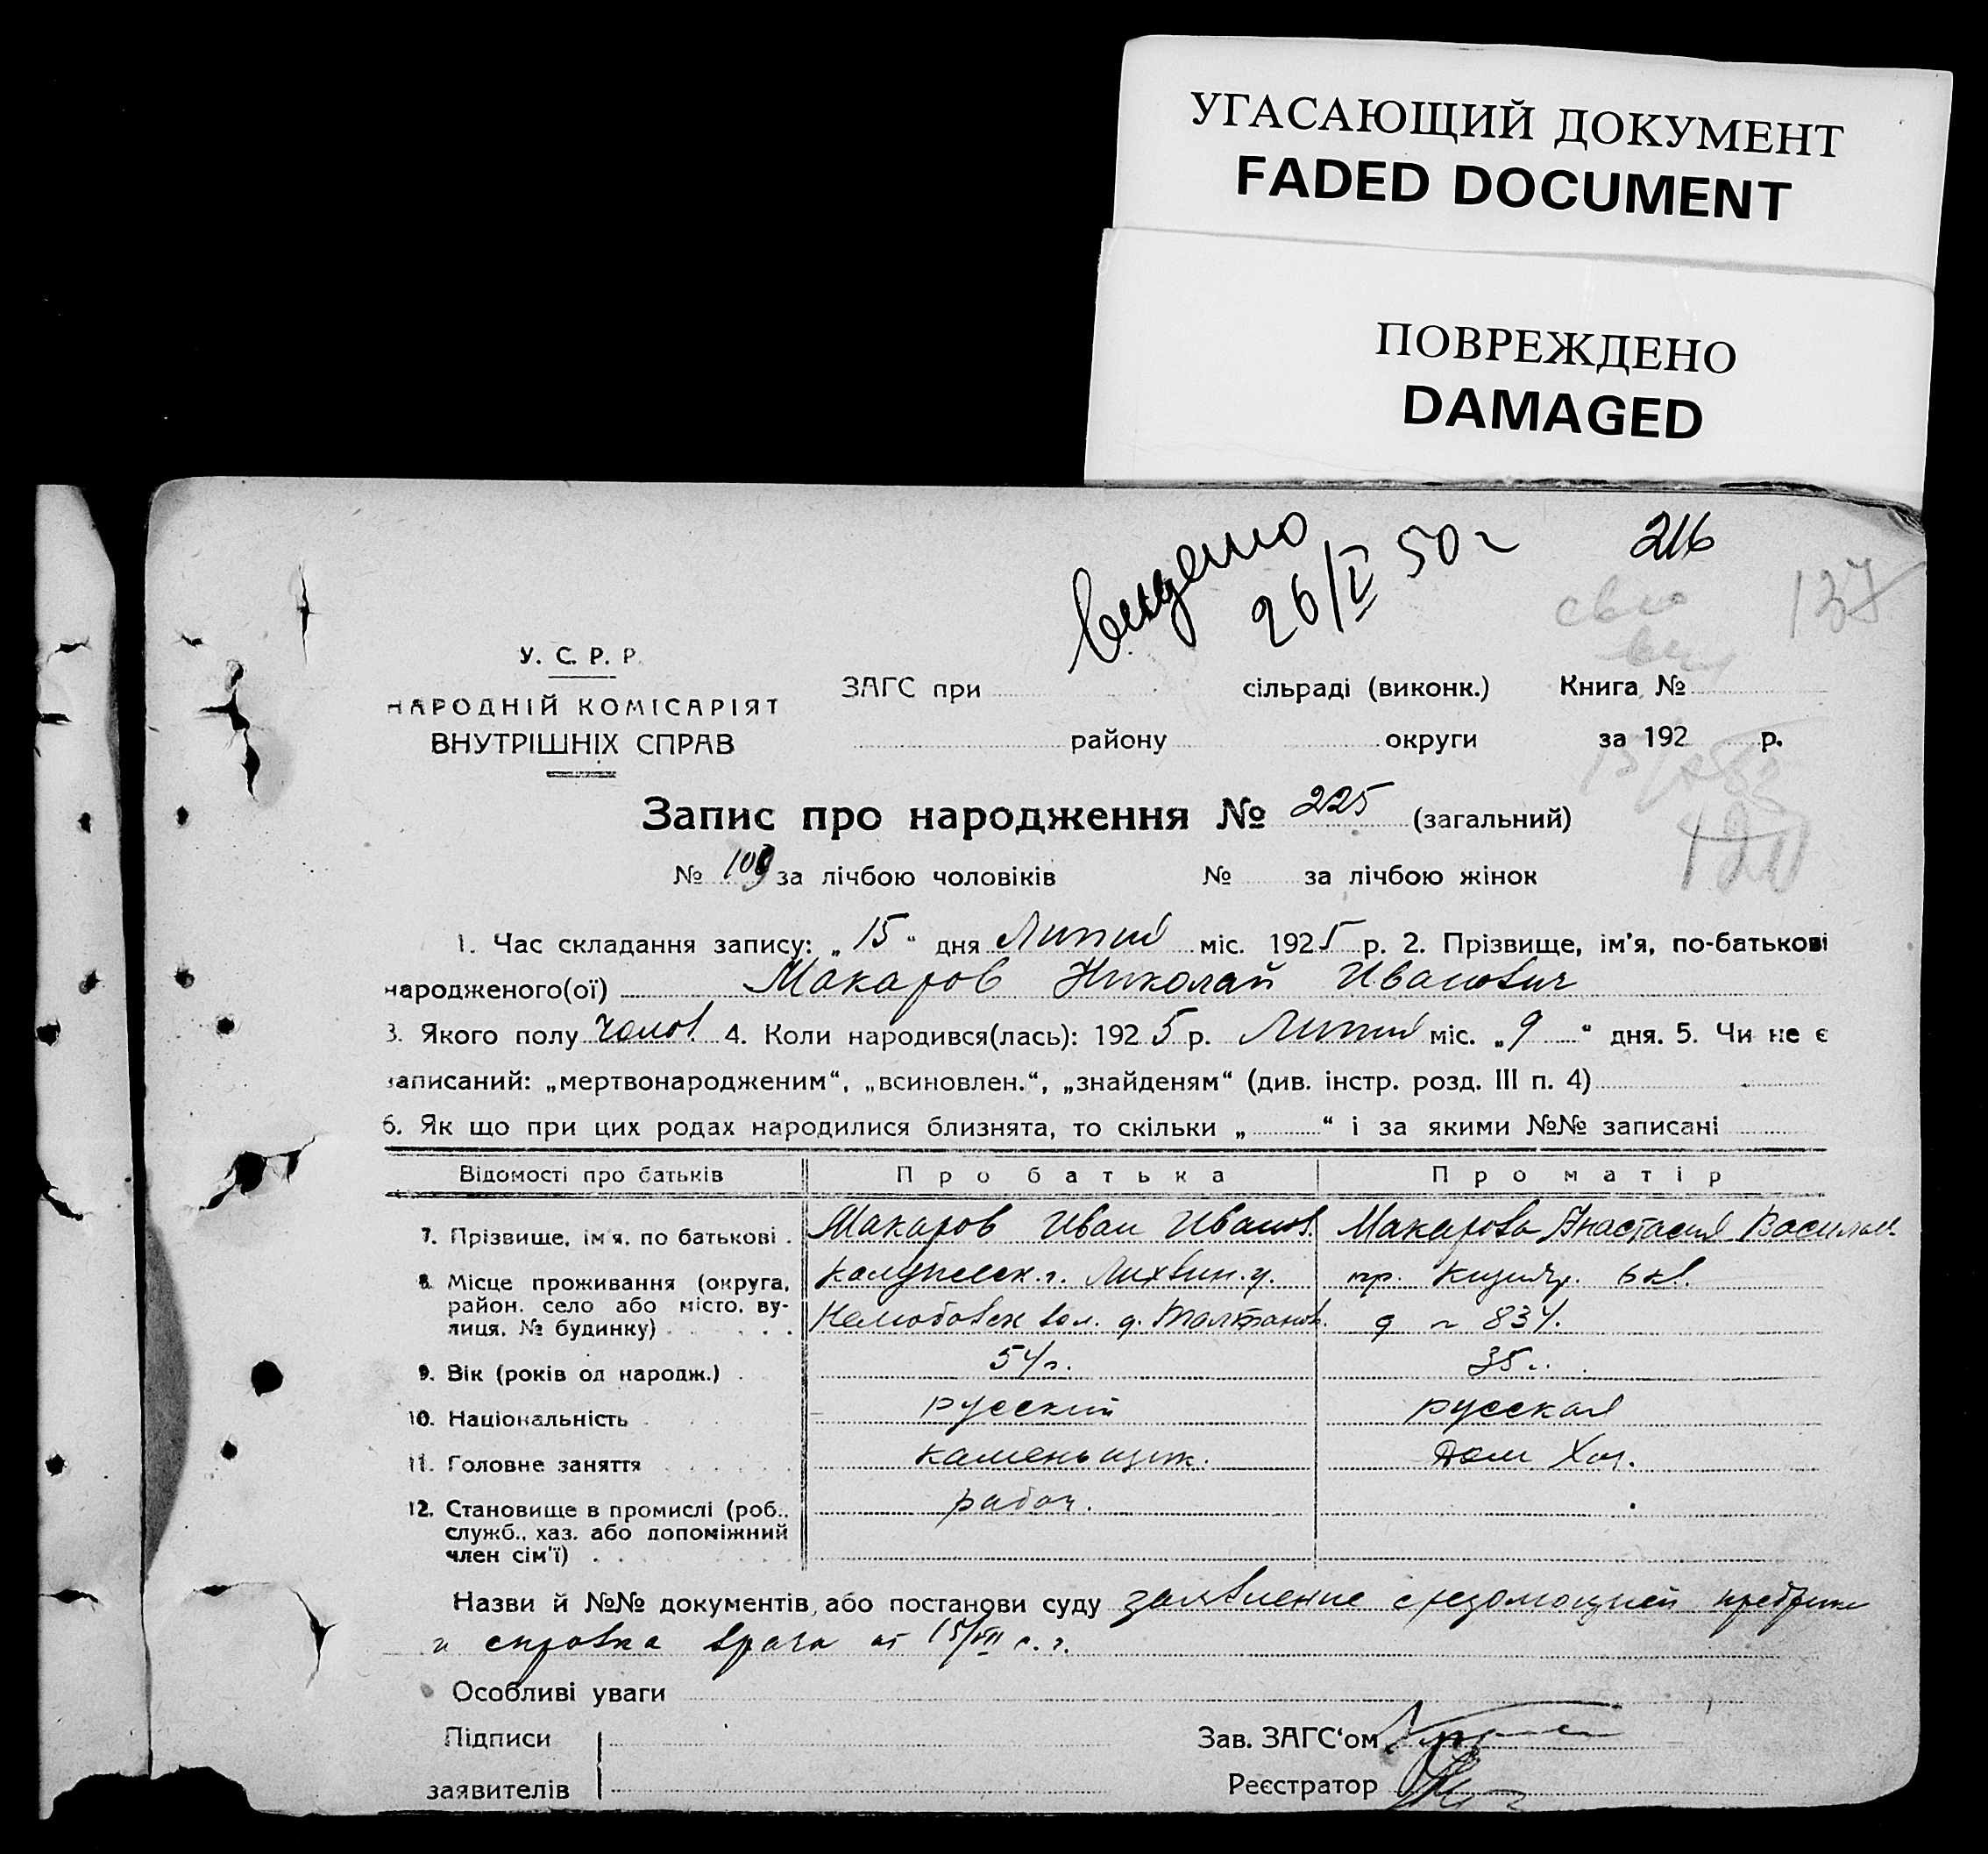 УГАСАЮЩИЙ ДОКУМЕНТ
FADED DOCUMENT
ПОВРЕЖДЕНО
DAMAGED
26/V 50 г
216
137
У. С. Р. Р.
НАРОДНІЙ КОМІСАРІЯТ
ВНУТРІШНІХ СПРАВ
ЗАГС при сільраді (виконк.) Книга №
району округи за 192 р.
Запис про народження № 225 (загальний)
№ 109 за лічбою чоловіків № за лічбою жінок
1. Час складання запису: „15“ дня Липня міс. 1925 р. 2. Прізвище, ім'я, по-батькові
народженого(ої) Макаров Николай Иванович
3. Якого полу чолов 4. Коли народився(лась): 1925 р. Липня міс. „9“ дня. 5. Чи не є
записаний: „мертвонародженим“, „всиновлен.“, „знайденям“ (див. інстр. розд. III п. 4)
6. Як що при цих родах народилися близнята, то скільки „ “ і за якими №№ записані
Відомості про батьків Про батька Про матір
7. Прізвище, ім'я, по батькові Макаров Иван Иванов. Макарова Анастасия Васильев.
8. Місце проживання (округа, район, село або місто, вулиця, № будинку) Калужск. г. Лихвин. у. пр.
вол. д. 834.
9. Вік (років од народж.) 54 г. 35 г.
10. Національність русский русская
11. Головне заняття каменьщик. Дом Хоз.
12. Становище в промислі (роб., служб., хаз. або допоміжний член сім'ї) рабоч.
Назви й №№ документів, або постанови суду заявление
и справка врача от 15/VII с. г.
Особливі уваги
Підписи
заявителів
Зав. ЗАГС'ом
Реєстратор